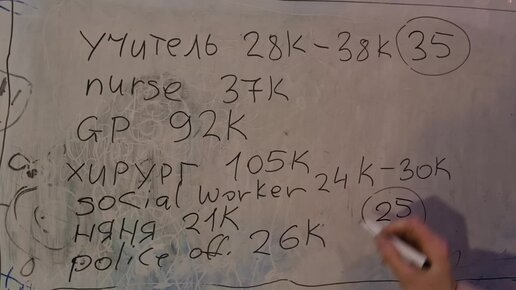 учитель 28K-38K 35
nurse 37K
GP 92K
хирург 105K
social worker 24K-30K
няня 21K 25
police off. 26K